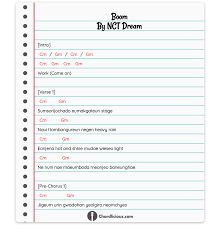 Boom
By NCT Dream
[Intro]
Cm / Gm / Cm / Gm
Cm Gm Cm Gm
Work (Come on)
[Verse 1]
Cm Gm
Sumsorijochado sumakigatoun stage
Cm Gm
Noui ttambangureun negen heavy rain
Cm Gm
Eonjena hot and shine mudae wieseo light
Cm Gm
Ne nun nae maeumboda meonjeo baneunghae
[Pre-Chorus 1]
Cm Gm
Jigeum urin gwadohan yeolgiro neomchyeo
Chordlicious.com